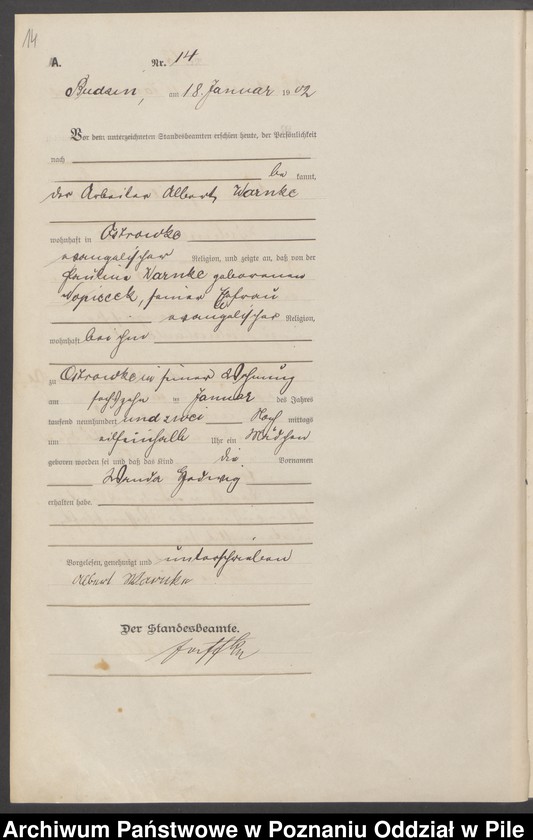 14
A. Nr. 14
Budsin, am 18. Januar 1902
Vor dem unterzeichneten Standesbeamten erschien heute, der Persönlichkeit
nach
be kannt,
der Arbeiter Albert Warnke
wohnhaft in Ostrowke
evangelischer Religion, und zeigte an, daß von der
Pauline Warnke geborenen
seiner Ehefrau
evangelischer Religion,
wohnhaft bei ihm
zu Ostrowke in seiner Wohnung
am sechszehn ten Januar des Jahres
tausend neunhundert und zwei Nach mittags
um Uhr ein Mädchen
geboren worden sei und daß das Kind die Vornamen
Wanda Hedwig
erhalten habe.
Vorgelesen, genehmigt und unterschrieben
Albert Warnke
Der Standesbeamte.
Archiwum Państwowe w Poznaniu Oddział w Pile